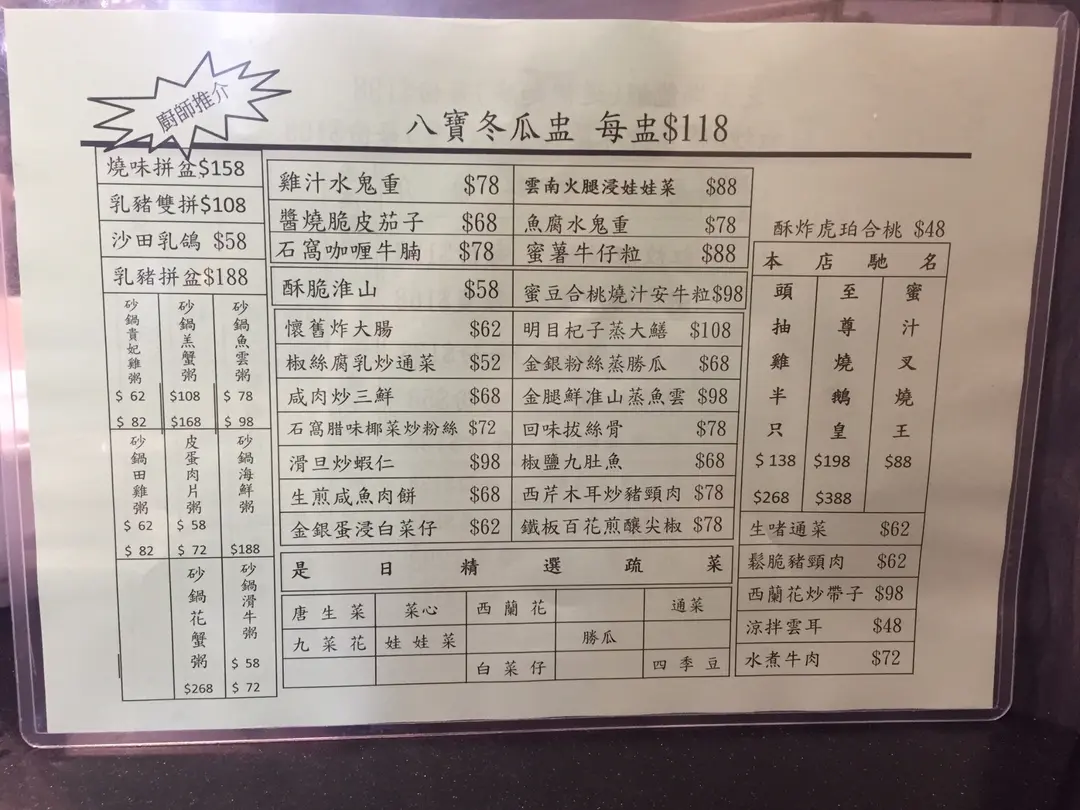 廚師推介
八寶冬瓜盅 每盅$118
燒味拼盆$158
乳豬雙拼$108
沙田乳鴿 $58
乳豬拼盆$188
砂鍋貴妃雞粥 $ 62 $ 82
砂鍋羔蟹粥 $108 $168
砂鍋魚雲粥 $ 78 $ 98
砂鍋田雞粥 $ 62 $ 82
皮蛋肉片粥 $ 58 $ 72
砂鍋海鮮粥 $188
砂鍋花蟹粥 $268
砂鍋滑牛粥 $ 58 $ 72
雞汁水鬼重 $78
雲南火腿浸娃娃菜 $88
醬燒脆皮茄子 $68
魚腐水鬼重 $78
石窩咖喱牛腩 $78
蜜薯牛仔粒 $88
酥脆淮山 $58
蜜豆合桃燒汁安牛粒$98
懷舊炸大腸 $62
明目杞子蒸大鱔 $108
椒絲腐乳炒通菜 $52
金銀粉絲蒸勝瓜 $68
咸肉炒三鮮 $68
金腿鮮准山蒸魚雲 $98
石窩腊味椰菜炒粉絲 $72
回味拔絲骨 $78
滑旦炒蝦仁 $98
椒鹽九肚魚 $68
生煎咸魚肉餅 $68
西芹木耳炒豬頸肉 $78
金銀蛋浸白菜仔 $62
鐵板百花煎釀尖椒 $78
是日精選疏菜
唐生菜 菜心 西蘭花 通菜
九菜花 娃娃菜 勝瓜
白菜仔 四季豆
酥炸虎珀合桃 $48
本店馳名
頭抽雞半只 $ 138 $268
至尊燒鵝皇 $198 $388
蜜汁叉燒王 $88
生啫通菜 $62
鬆脆豬頸肉 $62
西蘭花炒帶子 $98
涼拌雲耳 $48
水煮牛肉 $72